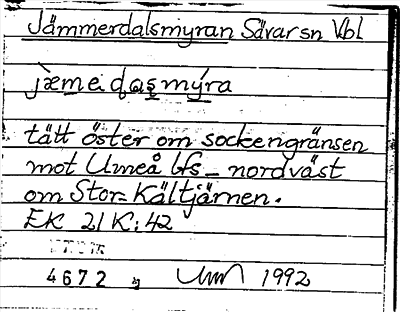 Jämmerdalsmyran Sävar sn Vbl
jæmedasmýra
tätt öster om sockengränsen
mot Umeå lfs – nordväst
om Stor-Kältjärnen.
EK 21 K:42
4672 Umn 1992